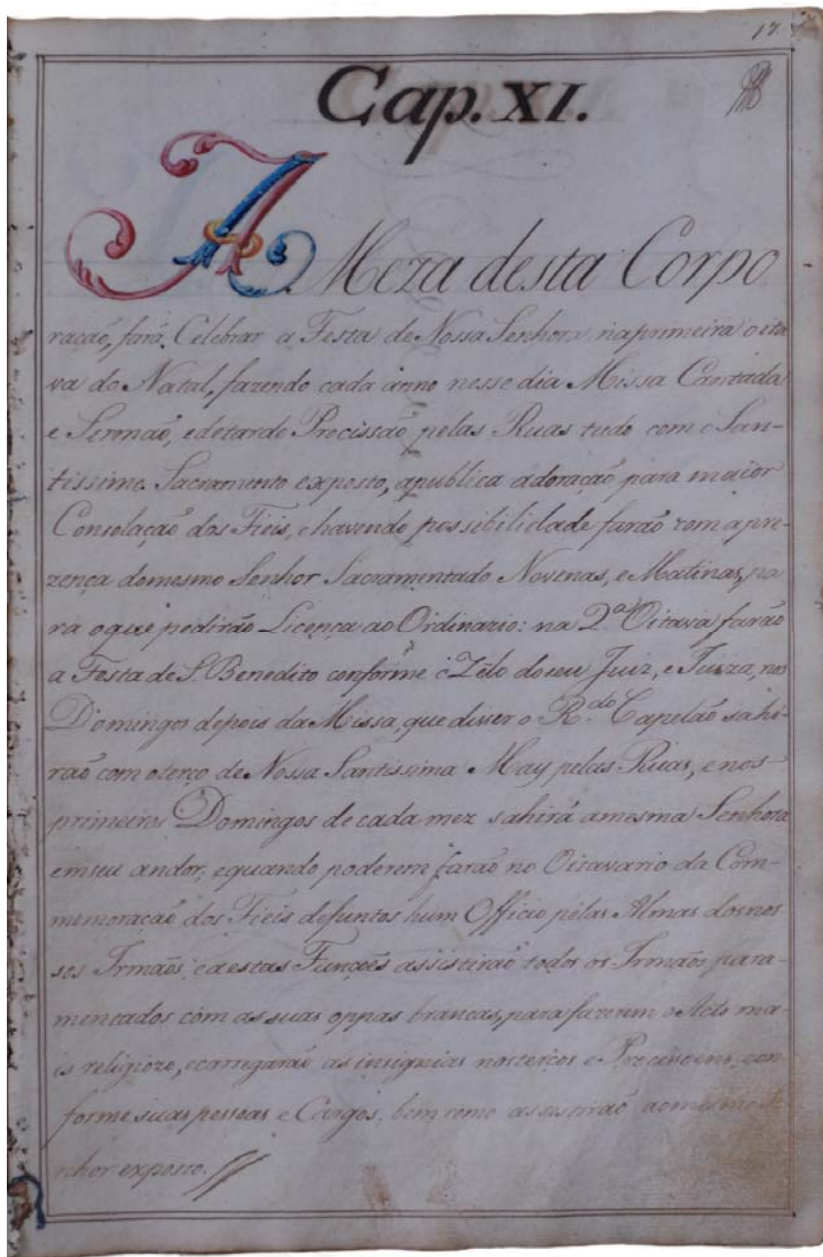 17
Cap. XI.
A Meza desta Corpo
ração, fará Celebrar a Festa de Nossa Senhora na primeira oita
va do Natal, fazendo cada anno nesse dia Missa Cantada
e Sermaõ, e de tarde Procissaõ pelas Ruas tudo com o San-
tissimo Sacramento exposto, apublica adoraçaõ para maior
Consolaçaõ dos Fieis, e havendo possibilidade faraõ com a pre-
zença domesmo Senhor Sacramentado Novenas, e Matinas, pa
ra oque pediraõ Licença ao Ordinario: na 2.ª Oitava faraõ
a Festa de S. Benedito conforme o Zêlo do seu Juiz, e Juiza, nos
Domingos depois da Missa, que disser o R.do Capelaõ sahi-
raõ com oterço de Nossa Santissima May pelas Ruas, e nos
primeiros Domingos de cada mez sahirá amesma Senhora
em seu andor, e quando poderem faraõ no Oitavario da Com-
memoraçaõ dos Fieis defuntos hum Officio pelas Almas dos nos
sos Irmaõs; e a estas Funçoẽs assistiraõ todos os Irmaõs para-
mentados com as suas oppas brancas, para fazerem o Acto ma-
is religiozo, e carregaraõ as insignias nos terços e Procissoens, con-
forme suas pessoas e Cargos, bem como assistiraõ ao mesmo Se-
nhor exposto.